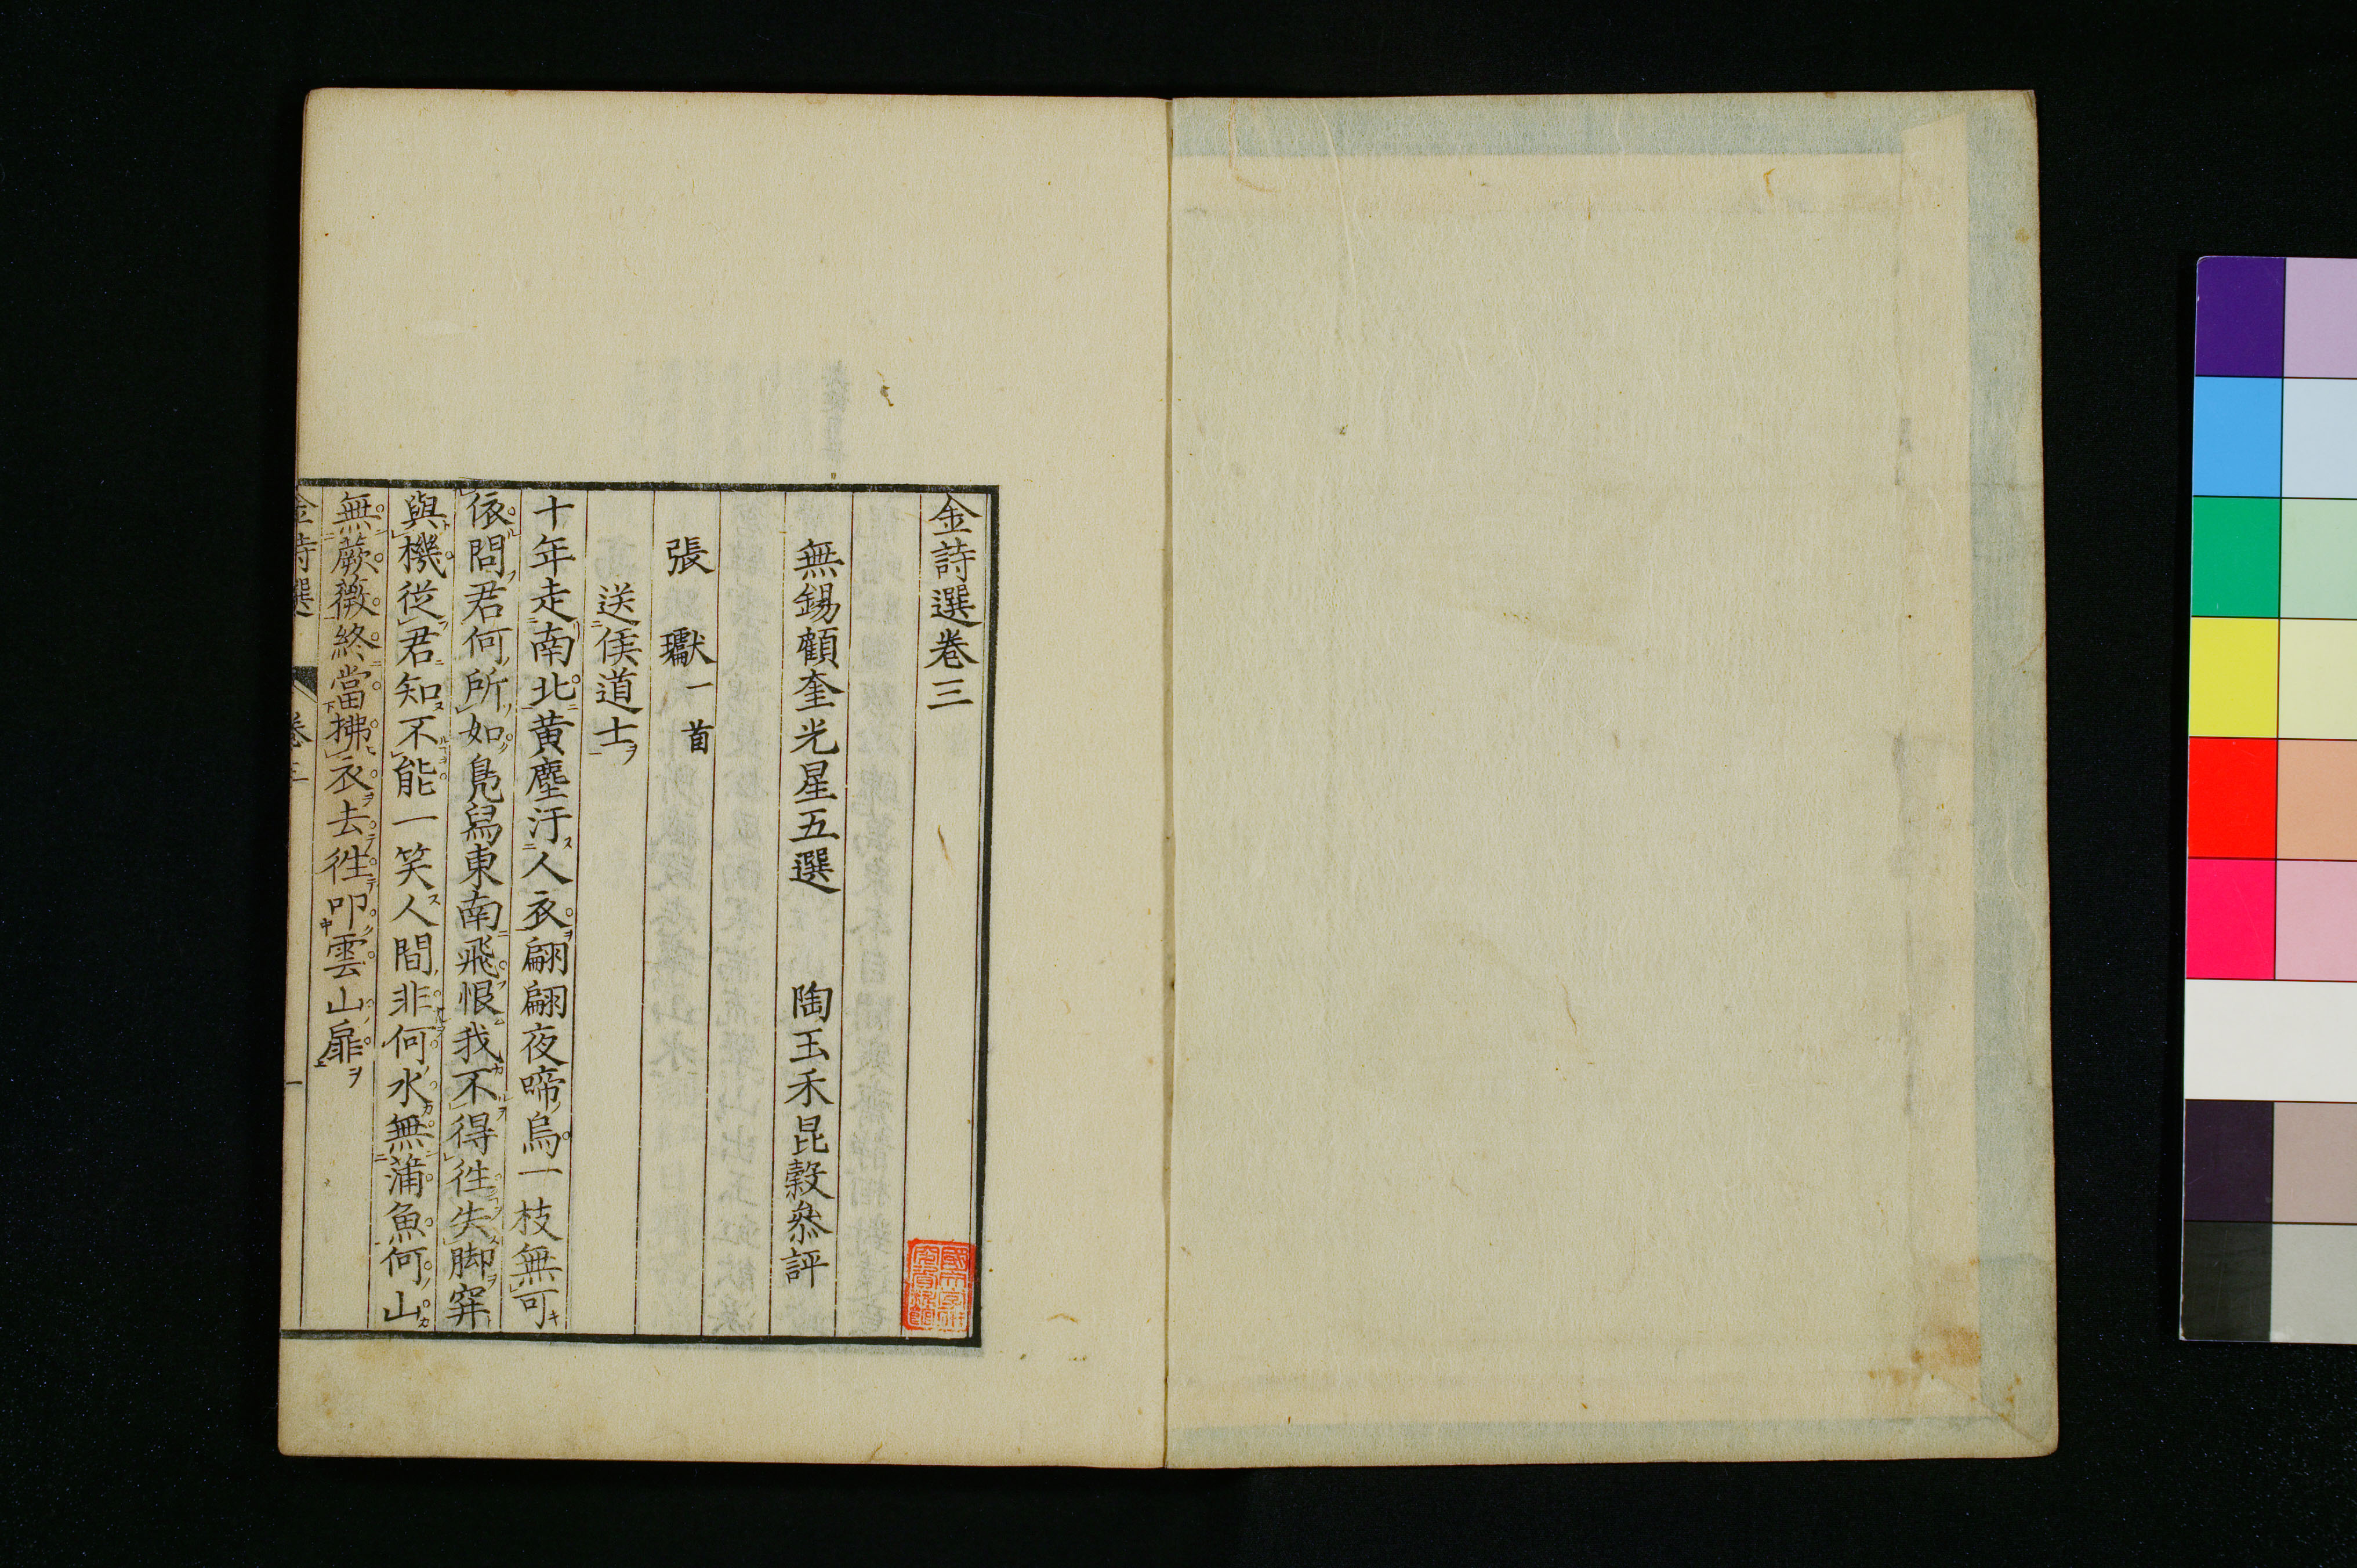 金詩選卷三
無錫顧奎光星五選　陶玉禾昆穀叅評
張　瓛一首
送侯道士
十年走南北黄塵汙人衣翩翩夜啼烏一枝無可
依問君何所如鳧舄東南飛恨我不得徃失脚穽
與機從君知不能一笑人間非何水無蒲魚何山
無蕨薇終當拂衣去徃叩雲山扉
金詩選　卷三　一